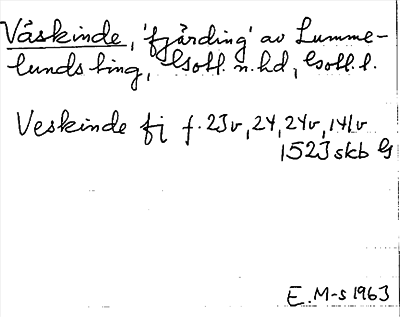 Väskinde, 'fjärding' av Lumme-
lunds ting, Gotl. n. hd, Gotl. l.
Veskinde fj f. 23v, 24, 24v, 141v
1523 skb G
E. M-s 1963